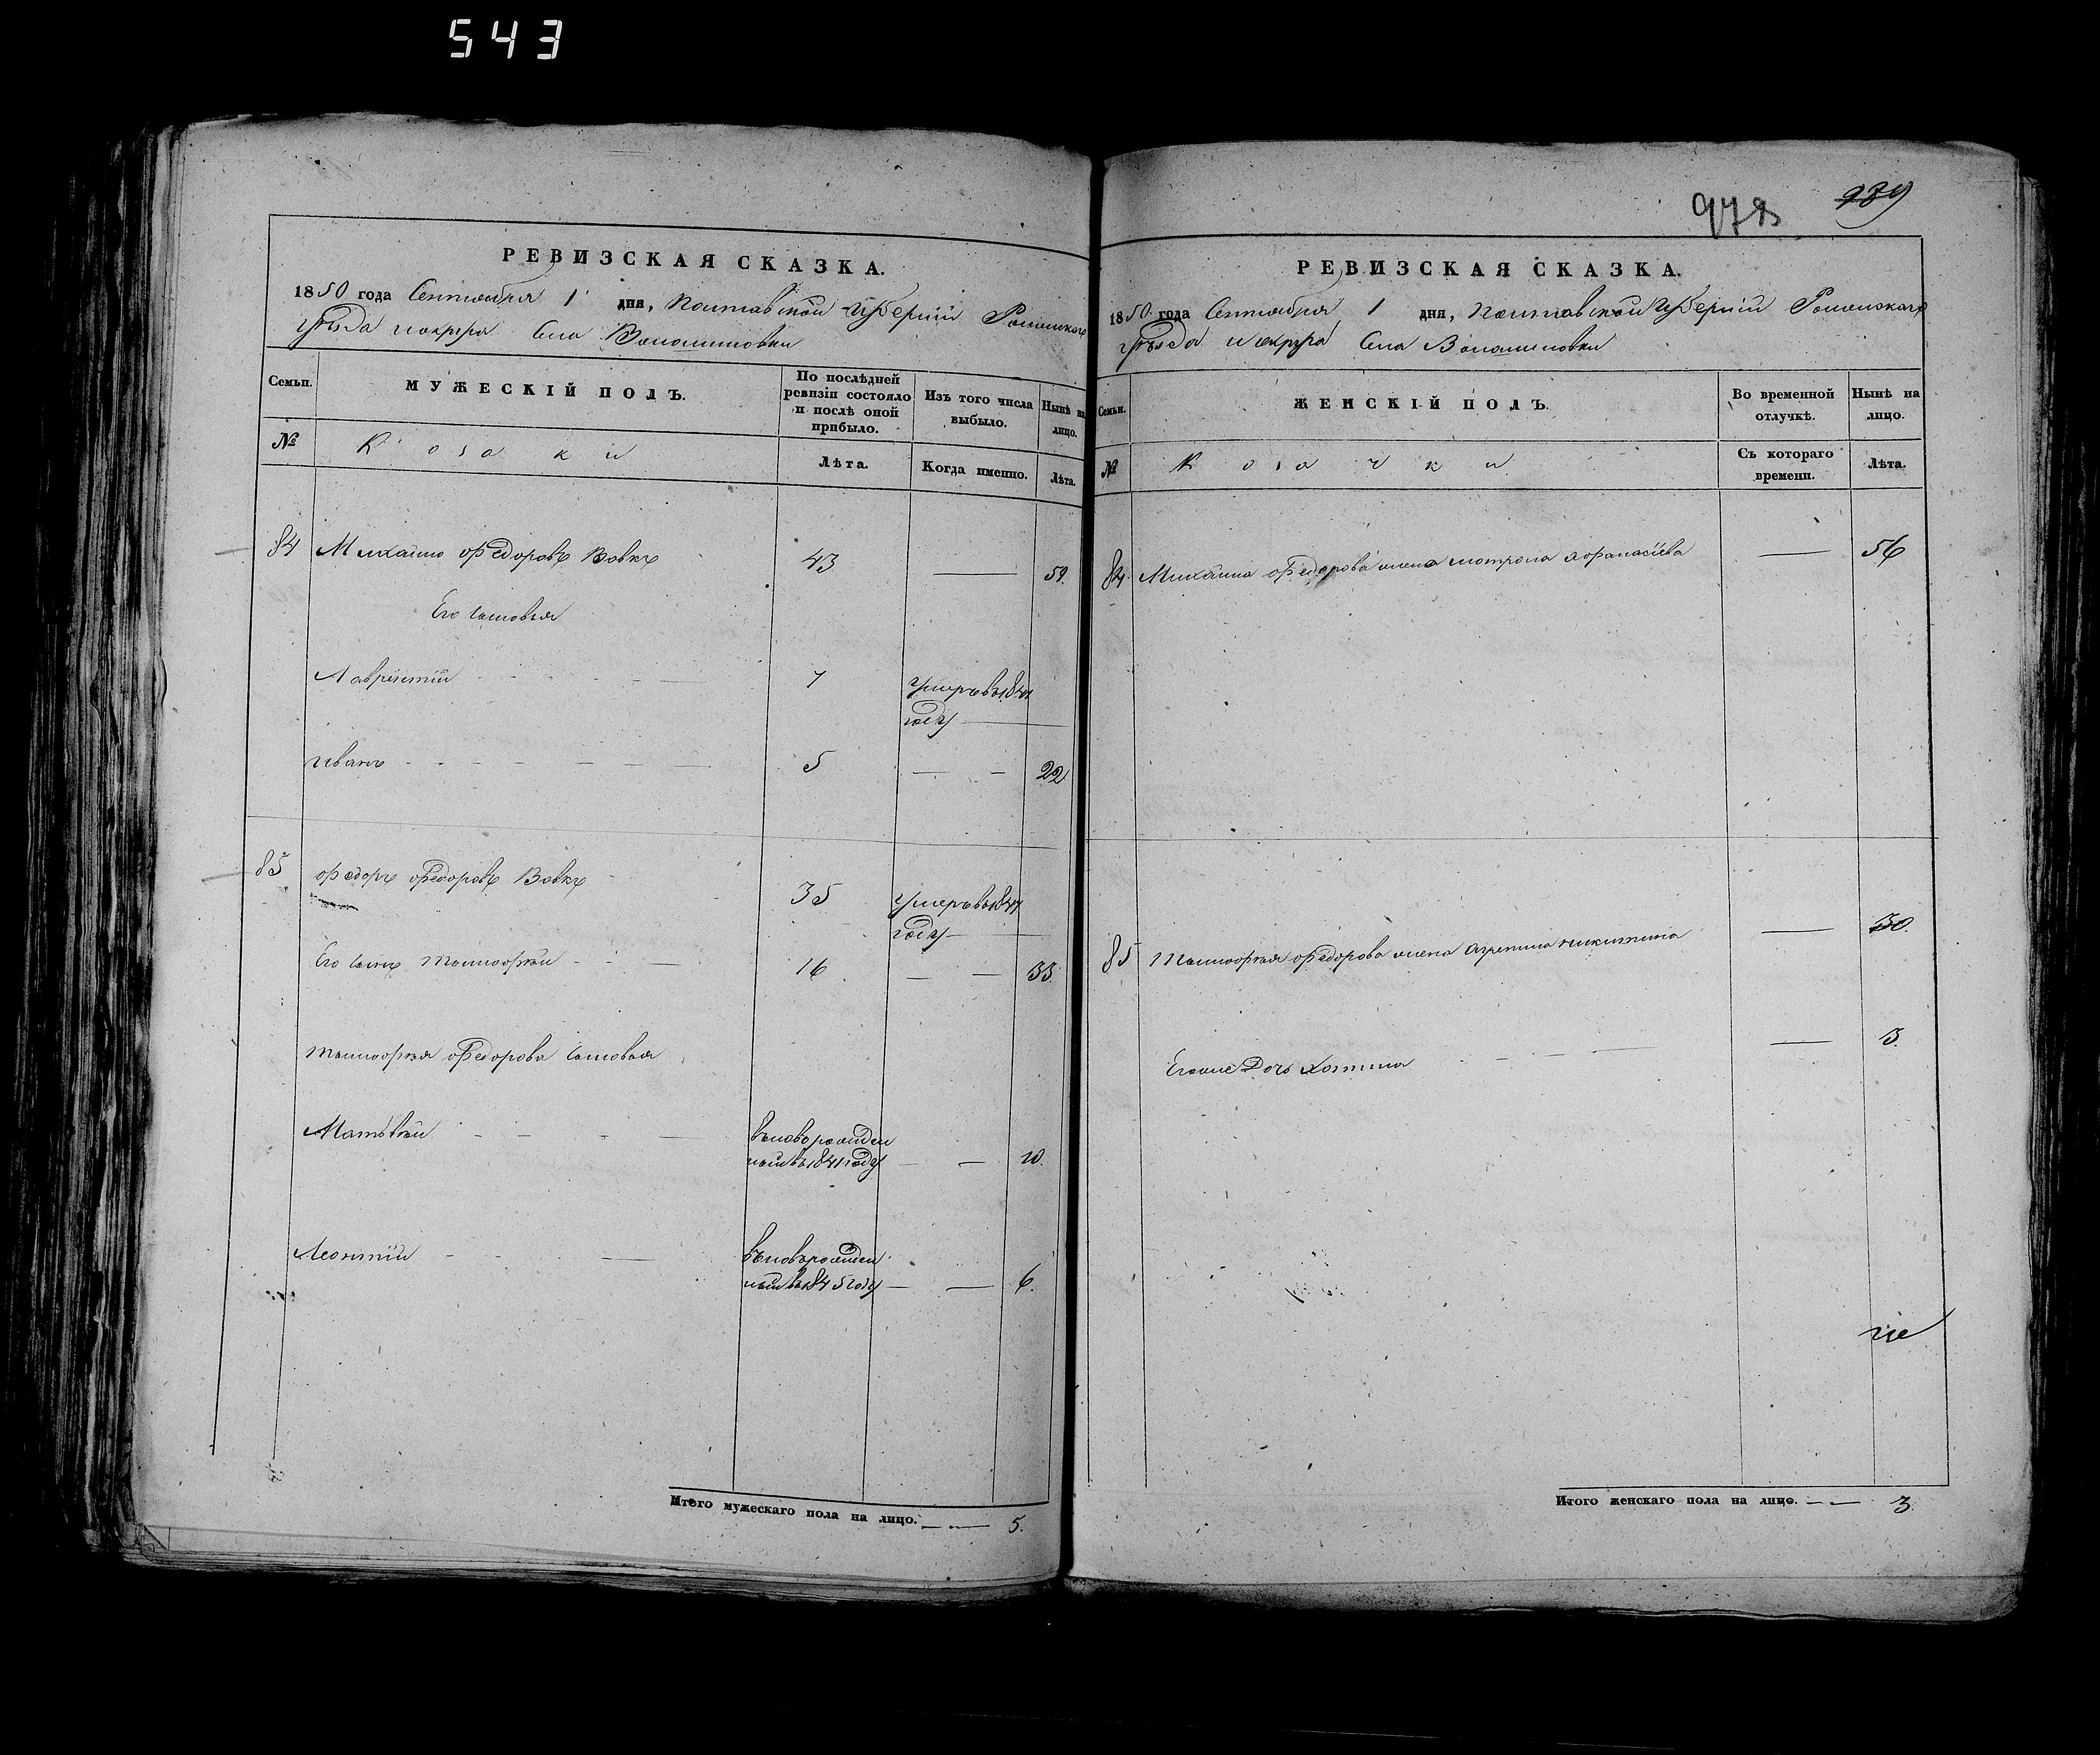 543
РЕВИЗСКАЯ СКАЗКА.
1850 года Сентября 1 дня, Полтавской Губернiи Роменскаго
уѣзда и округа Села Волошиновки
Семьи. МУЖЕСКIЙ ПОЛЪ. По послѣдней ревизiи состояло и послѣ оной прибыло. Изъ того числа выбыло. Нынѣ на лицо.
№ Козаки Лѣта. Когда именно. Лѣта.
84 Михайло Федоровъ Вовкъ 43 59.
Его сыновья
Лаврентiй 7 умеръ въ 184
году
Иванъ 5 22
85 Федоръ Федоровъ Вовкъ 35 умеръ въ 1847
году
Его сынъ Тимофѣй 16 33.
Тимофѣя Федорова сыновья
Матвѣй вновьрожден
ный въ 1841 году 10.
Леонтiй вновьрожден
ный въ 1845 году 6.
Итого мужескаго пола на лицо. 5.
978 939
РЕВИЗСКАЯ СКАЗКА.
1850 года Сентября 1 дня, Полтавской Губернiи Роменскаго
уѣзда и округа Села Волошиновки
Семьи. ЖЕНСКIЙ ПОЛЪ. Во временной отлучкѣ. Нынѣ на лицо.
№ Козачки Съ котораго времени. Лѣта.
84 Михайла Федорова жена Мотрона Афанасiева 56
85 Тимофѣя Федорова жена Агрепина Никитина 30.
Егоже дочь Хотина 3.
Итого женскаго пола на лицо. 3